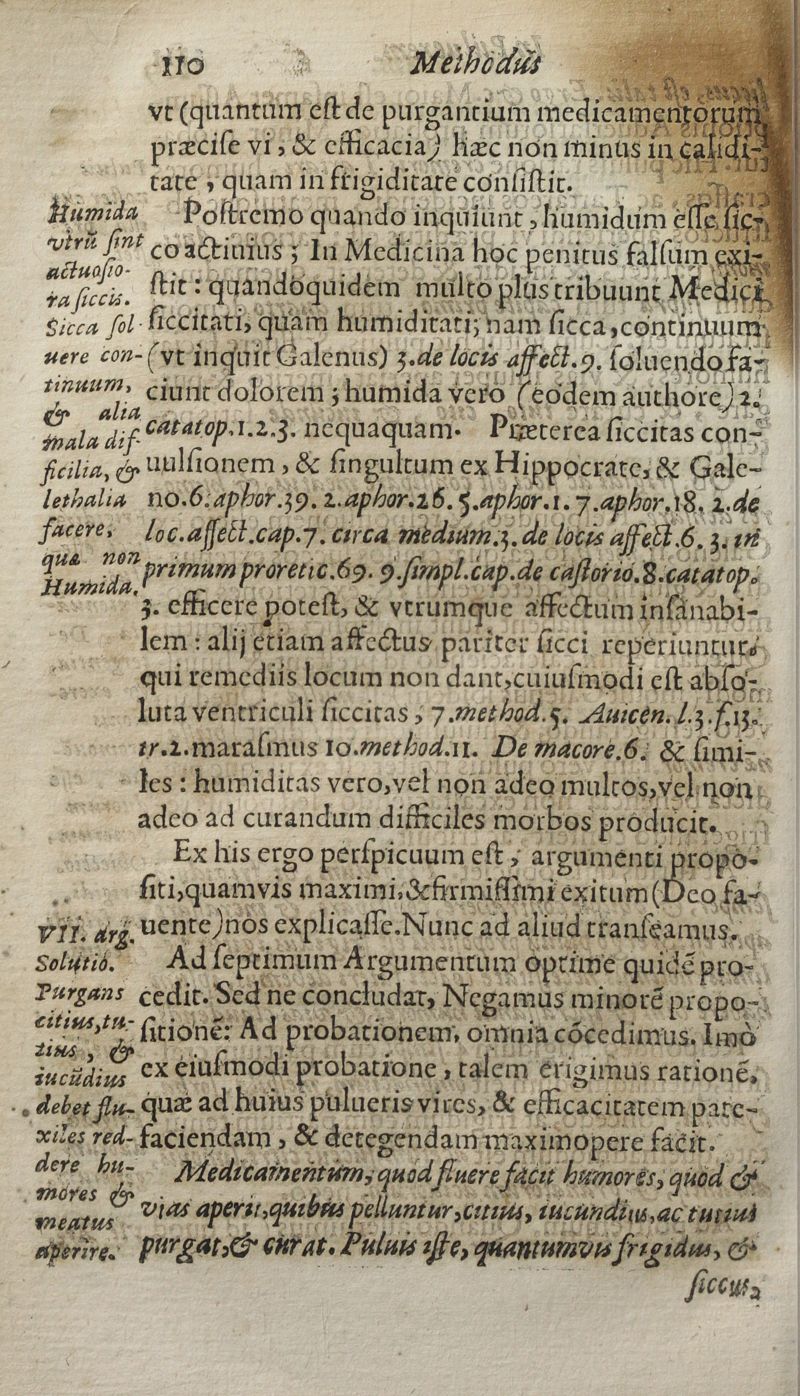 110 Methodus
vt (quantum est de purgantium medicamentorum
præcise vi, & efficacia) hæc non minus in calidi-
tate, quam in frigiditate consistit.
Postremo quando inquiunt, humidum esse sic-
co actiuius; In Medicina hoc penitus falsum exi-
stit: quandoquidem multo plus tribuunt Medici
siccitati, quam humiditati; nam sicca, continuum
(vt inquit Galenus) 3.de locis affect.9. soluendo fa-
ciunt dolorem; humida vero (eodem authore) 2.
catatop.1.2.3. nequaquam. Præterea siccitas con-
uulsionem, & singultum ex Hippocrate, & Gale-
no.6.aphor.39. 2.aphor.26. 5.aphor.1. 7.aphor.18. 2.de
loc.affect.cap.7. circa medium.3. de locis affect.6. 3. in
primum proretic.69. 9.simpl.cap.de castorio.8.catatop.
3. efficere potest, & vtrumque affectum insanabi-
lem: alij etiam affectus pariter sicci reperiuntur,
qui remediis locum non dant, cuiusmodi est abso-
luta ventriculi siccitas, 7.method.5. Auicen.l.3.f.13.
tr.2.marasmus 10.method.11. De macore.6. & simi-
les: humiditas vero, vel non adeo multos, vel non
adeo ad curandum difficiles morbos producit.
Ex his ergo perspicuum est, argumenti propo-
siti, quamvis maximi, & firmissimi exitum (Deo fa-
uente) nos explicasse. Nunc ad aliud transeamus.
Ad septimum Argumentum optime quidē pro-
cedit. Sed ne concludat, Negamus minorē propo-
sitionē: Ad probationem, omnia cōcedimus. Imò
ex eiusmodi probatione, talem erigimus rationē,
quæ ad huius pulueris vires, & efficacitatem pate-
faciendam, & detegendam maximopere facit.
Medicamentum, quod fluere facit humores, quod &
vias aperit, quibus pelluntur, citius, iucundius, ac tutius
purgat, & curat. Puluis iste, quantumvis frigidus, &
siccus,
Humida
virū sint
actuosio-
ra siccis.
Sicca sol-
uere con-
tinuum,
& alia
mala dif-
ficilia, &
lethalia
facere,
quæ non
Humida.
VII. arg.
Solutio.
Purgans
citius, tu-
tius, &
iucūdius
debet flu-
xiles red-
dere hu-
mores &
meatus
aperire.